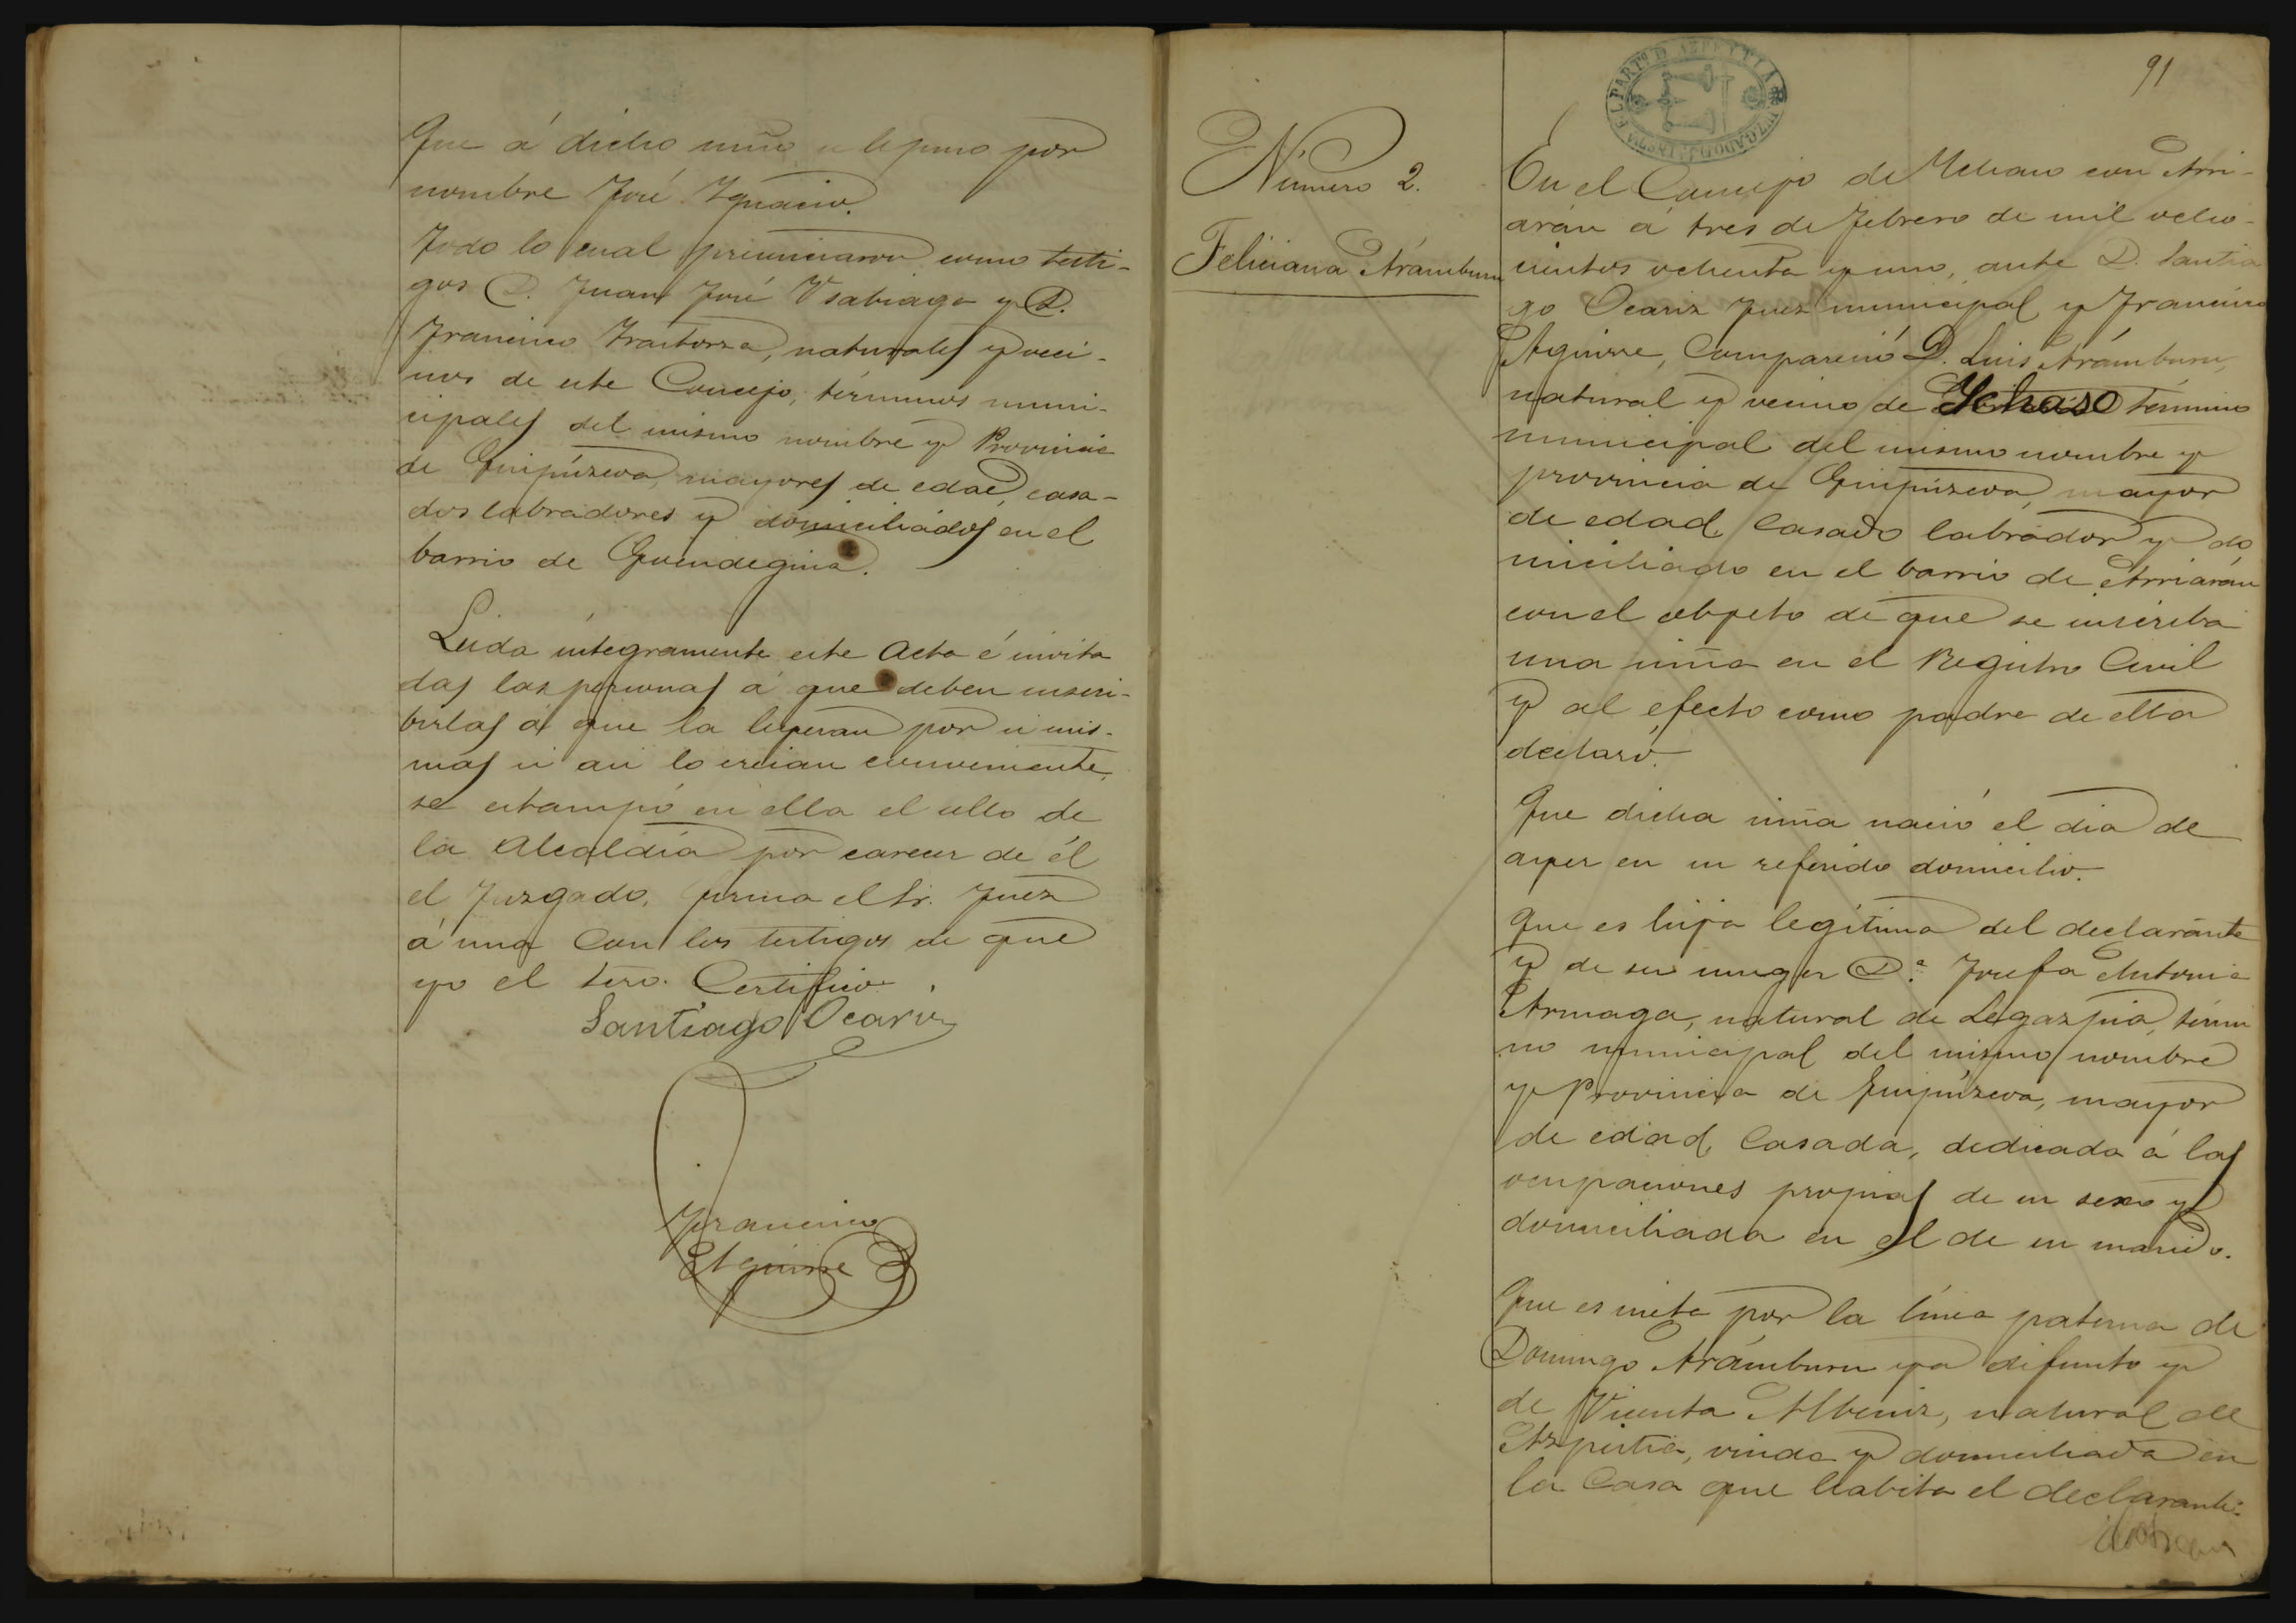 Que á dicho niño se le puso por
nombre José Ygnacio.
Todo lo cual presenciaron como testi-
gos D. Juan José Usabiaga y D.
Francisco Yraitorza, naturales y veci-
nos de este Concejo, términos muni-
cipales del mismo nombre y Provincia
de Guipúzcoa, mayores de edad, casa-
dos labradores y domiciliados en el
barrio de
Leida íntegramente este Acta é invita
das las personas á que deben inscri-
birlas á que la leyeran por si mis-
mas si asi lo creian conveniente,
se estampó en ella el sello de
la Alcaldía por carecer de él
el Juzgado, firma el Sr. Juez
á una Con los testigos de que
yo el Srio. Certifico.
Santiago Ocariz
Francisco
Aguirre
91
JUZGADO
PARTº D AZPEYTIA
Número 2.
Feliciana Arámburu
En el Concejo de Ychaso con Arri-
arán á tres de Febrero de mil ocho-
cientos ochenta y uno, ante D. Santia
go Ocariz Juez municipal y Francisco
Aguirre, Compareció D. Luis Arámburu,
natural y vecino de Ychaso término
municipal del mismo nombre y
provincia de Guipúzcoa, mayor
de edad, Casado labrador y do
miciliado en el barrio de Arriarán
con el objeto de que se inscriba
una niña en el Registro Civil
y al efecto como padre de ella
declaró.
Que dicha niña nació el dia de
ayer en su referido domicilio.
Que es hija legítima del declarante
y de su muger D.ª Josefa Antonia
Armaga, natural de Legazpia, térmi
no municipal del mismo nombre
y Provincia de Guipúzcoa, mayor
de edad, Casada, dedicada á las
ocupaciones propias de su sexo y
domiciliada en el de su marido.
Que es nieta por la línea paterna de
Domingo Arámburu ya difunto y
de Vicenta Albeniz, natural de
Azpeitia, viuda y domiciliada en
la Casa que habita el declarante.